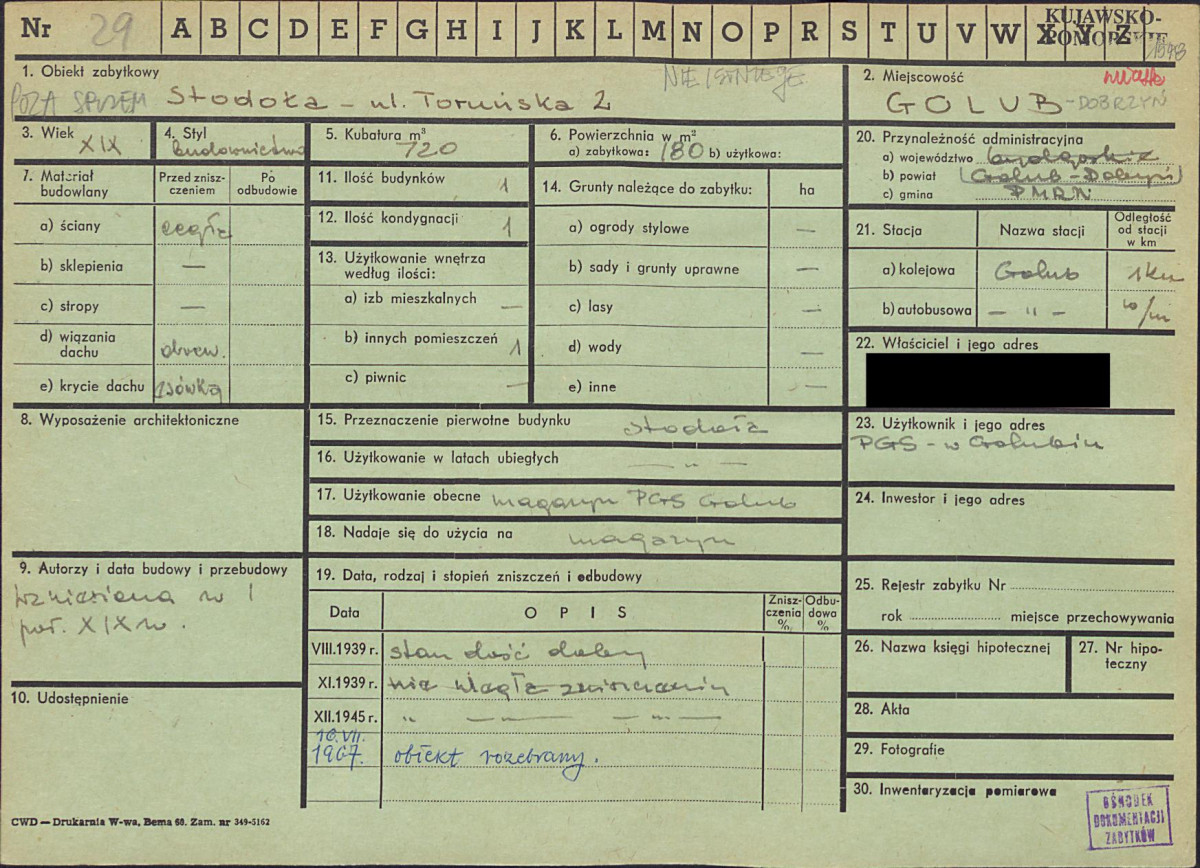 Nr 29 A B C D E F G H I J K L M N O P R S T U V W X Y Z
KUJAWSKO-
POMORSKIE
1. Obiekt zabytkowy
NIE ISTNIEJE
POZA SPISEM Stodoła – ul. Toruńska 2
2. Miejscowość
miasto
GOLUB - DOBRZYŃ
3. Wiek
XIX
4. Styl
budownictwo
5. Kubatura m³
720
6. Powierzchnia w m²
a) zabytkowa: 180 b) użytkowa:
20. Przynależność administracyjna
a) województwo bydgoskie
b) powiat (Golub-Dobrzyń)
c) gmina PMRN
7. Materiał budowlany
Przed znisz-
czeniem
Po
odbudowie
a) ściany cegła
b) sklepienia —
c) stropy —
d) wiązania
dachu drew.
e) krycie dachu
11. Ilość budynków 1
12. Ilość kondygnacji 1
13. Użytkowanie wnętrza
według ilości:
a) izb mieszkalnych —
b) innych pomieszczeń 1
c) piwnic —
14. Grunty należące do zabytku: ha
a) ogrody stylowe —
b) sady i grunty uprawne —
c) lasy —
d) wody —
e) inne —
21. Stacja Nazwa stacji
Odległość
od stacji
w km
a) kolejowa Golub 1 km
b) autobusowa — " —
22. Właściciel i jego adres
8. Wyposażenie architektoniczne
15. Przeznaczenie pierwotne budynku stodoła
16. Użytkowanie w latach ubiegłych — " —
17. Użytkowanie obecne magazyn PGS Golub
18. Nadaje się do użycia na magazyn
23. Użytkownik i jego adres
PGS - w Golubiu
24. Inwestor i jego adres
9. Autorzy i data budowy i przebudowy
Wzniesiona w I
poł. XIX w.
10. Udostępnienie
19. Data, rodzaj i stopień zniszczeń i odbudowy
Data OPIS
Znisz-
czenia
%
Odbu-
dowa
%
VIII.1939 r. stan dość dobry
XI.1939 r. nie uległa zniszczeniu
XII.1945 r. " — " — — " —
10.VII.
1967. obiekt rozebrany.
25. Rejestr zabytku Nr
rok miejsce przechowywania
26. Nazwa księgi hipotecznej
27. Nr hipo-
teczny
28. Akta
29. Fotografie
30. Inwentaryzacja pomiarowa
OŚRODEK
DOKUMENTACJI
ZABYTKÓW
CWD — Drukarnia W-wa, Bema 60. Zam. nr 349-5162